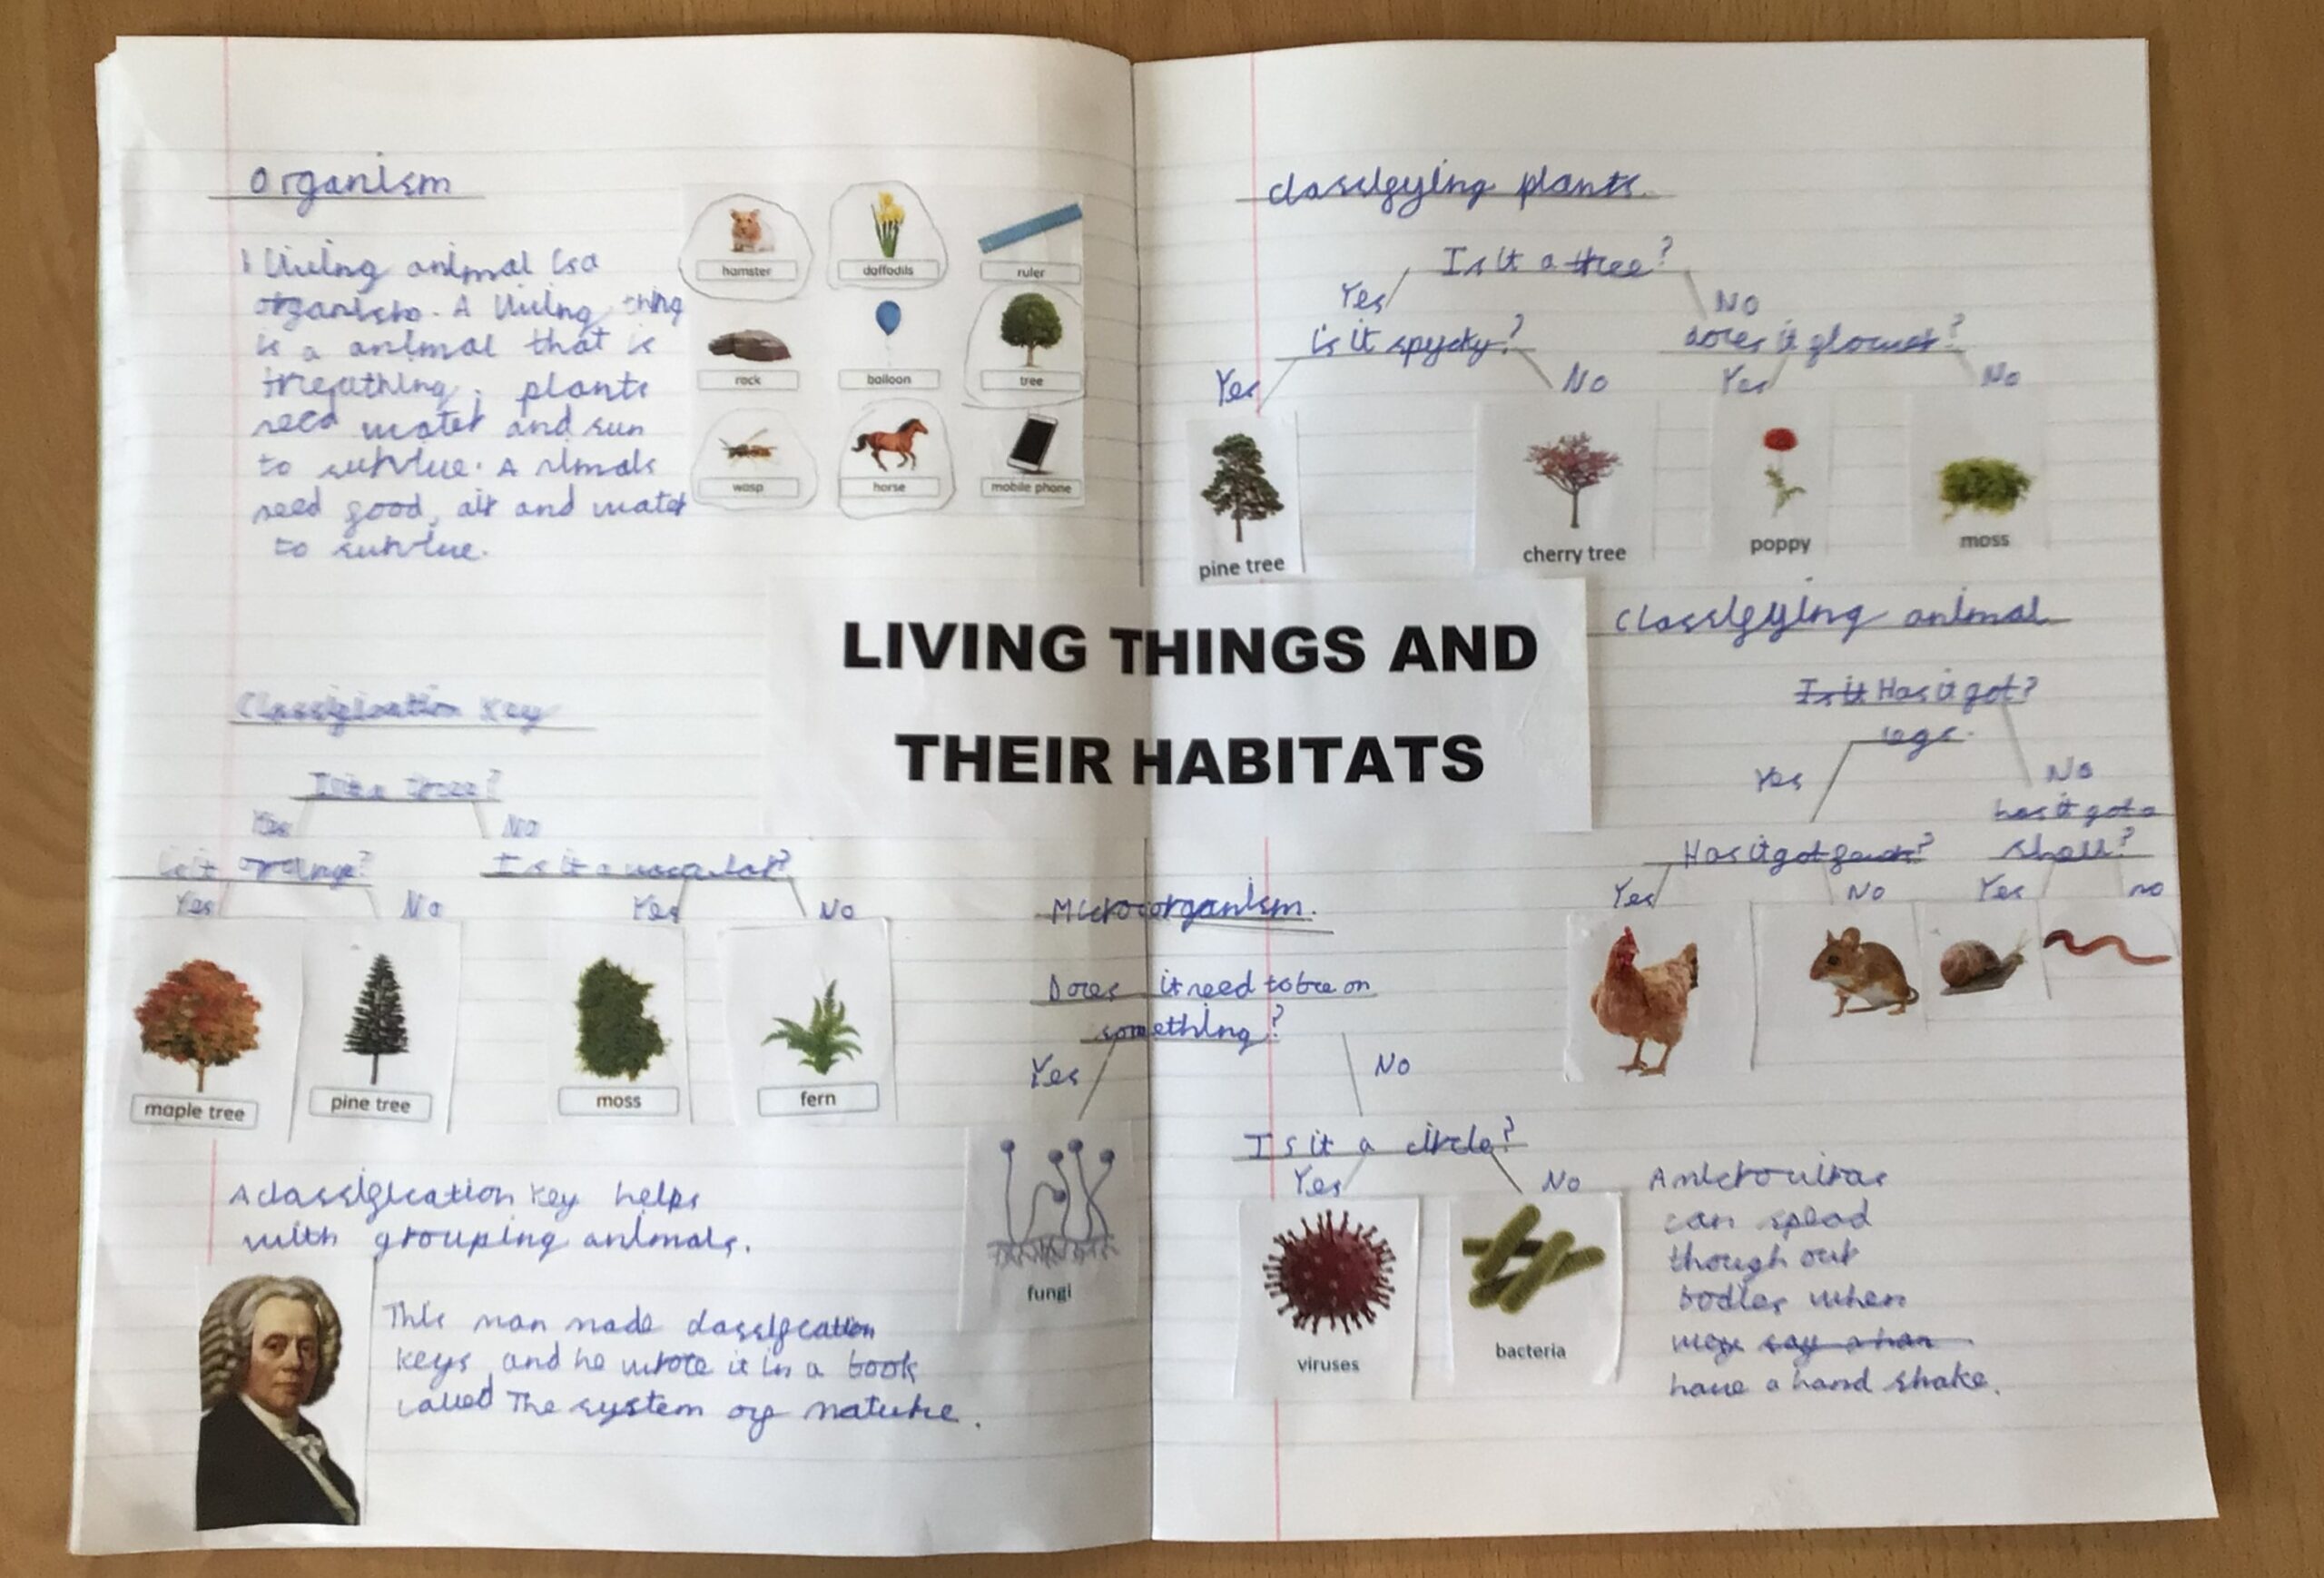 Organism
Living animal is a
organism. A living thing
is a animal that is
breathing. plants
need water and sun
to survive. Animals
need food, air and water
to survive.
hamster
daffodils
ruler
rock
balloon
tree
wasp
horse
mobile phone
Classification Key
Is it a tree?
Yes
No
Is it orange?
Yes
No
Is it a
Yes
No
maple tree
pine tree
moss
fern
A classification key helps
with grouping animals.
This man made classification
keys and he wrote it in a book
called The system of nature.
LIVING THINGS AND
THEIR HABITATS
classifying plants.
Is it a tree?
Yes
No
is it spycky?
Yes
No
does it flower?
Yes
No
pine tree
cherry tree
poppy
moss
Classifying animal
Is it Has it got?
legs.
Yes
No
Has it got
Yes
No
has it got a
shell?
Yes
no
Microorganism.
Does it need to be on
something?
Yes
No
fungi
Is it a circle?
Yes
No
viruses
bacteria
A
can spead
though out
bodies when
say a han
have a hand shake.